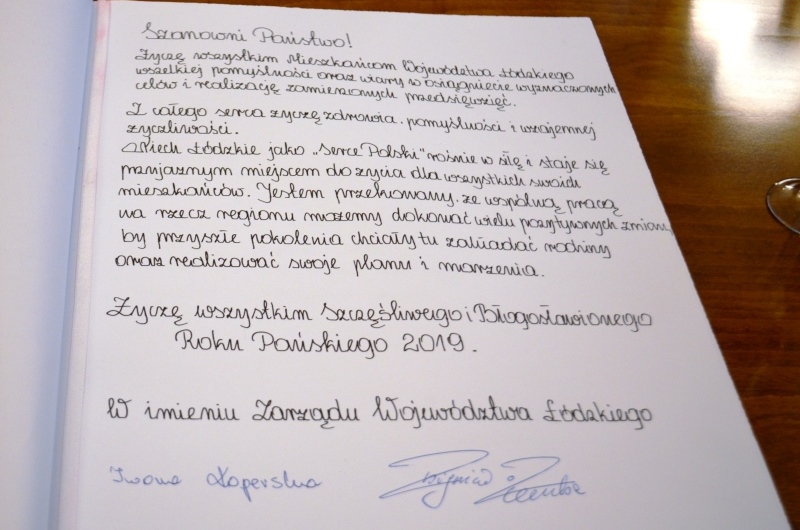 Szanowni Państwo!
Życzę wszystkim Mieszkańcom Województwa Łódzkiego
wszelkiej pomyślności oraz wiary w osiągnięcie wyznaczonych
celów i realizację zamierzonych przedsięwzięć.
Z całego serca życzę zdrowia, pomyślności i wzajemnej
życzliwości.
Niech Łódzkie jako „Serce Polski" rośnie w siłę i staje się
przyjaznym miejscem do życia dla wszystkich swoich
mieszkańców. Jestem przekonany, że wspólną pracą
na rzecz regionu możemy dokonać wielu pozytywnych zmian,
by przyszłe pokolenia chciały tu zakładać rodziny
oraz realizować swoje plany i marzenia.
Życzę wszystkim Szczęśliwego i Błogosławionego
Roku Pańskiego 2019.
W imieniu Zarządu Województwa Łódzkiego
Iwona Koperska Zbigniew Ziemba